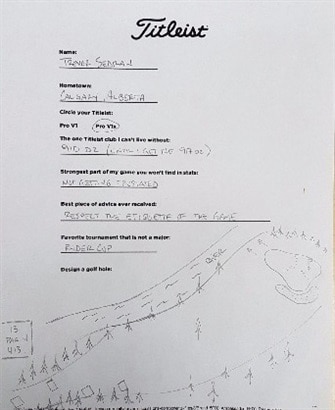 Titleist
Name:
Hometown:
CALGARY, ALBERTA
Circle your Titleist:
Pro V1 Pro V1x
The one Titleist club I can't live without:
Strongest part of my game you won't find in stats:
NOT GETTING
Best piece of advice ever received:
RESPECT THE ETIQUETTE OF THE GAME
Favorite tournament that is not a major:
RYDER CUP
Design a golf hole:
RIVER
13
PAR 4
413